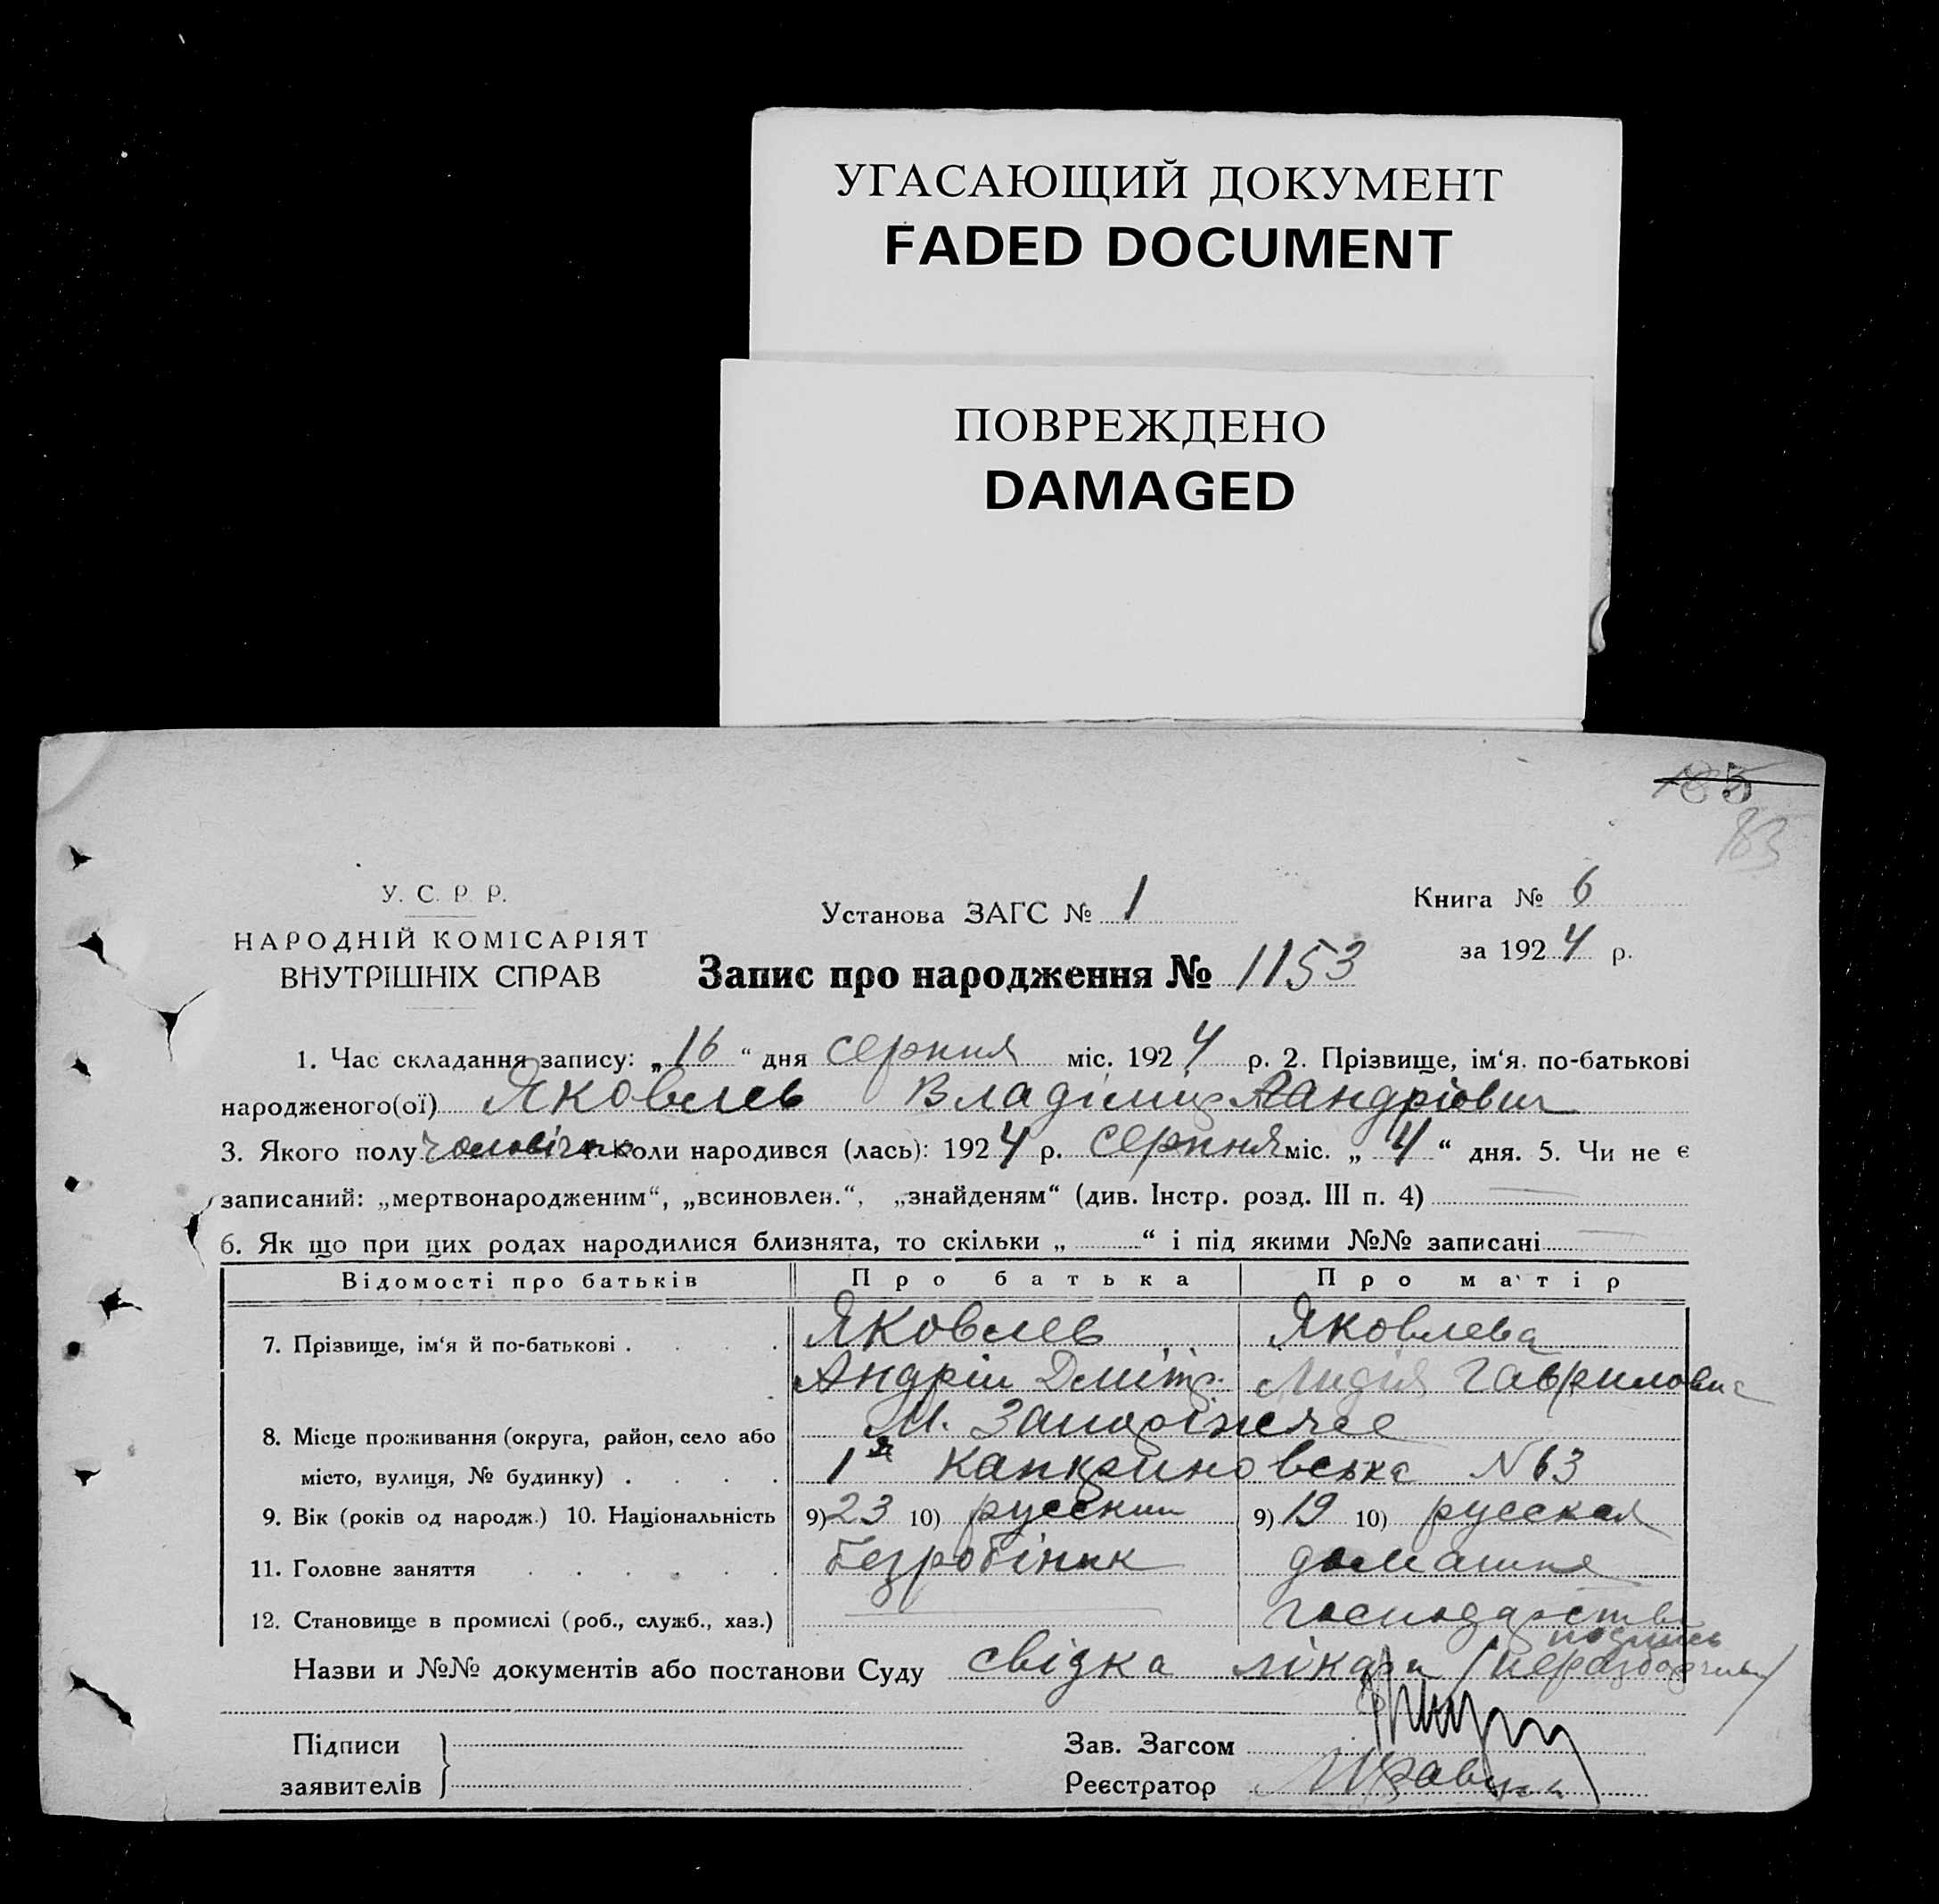 УГАСАЮЩИЙ ДОКУМЕНТ
FADED DOCUMENT
ПОВРЕЖДЕНО
DAMAGED
185
83
У. С. Р. Р.
НАРОДНІЙ КОМІСАРІЯТ
ВНУТРІШНІХ СПРАВ
Установа ЗАГС № 1
Книга № 6
за 1924 р.
Запис про народження № 1153
1. Час складання запису: „16“ дня серпня міс. 1924 р. 2. Прізвище, ім‘я. по-батькові
народженого(ої) Яковлев Владімир Андріович
3. Якого полу чоловічa коли народився (лась): 1924 р. серпня міс. „4“ дня. 5. Чи не є
записаний: „мертвонародженим“, „всиновлен.“, „знайденям“ (див. Інстр. розд. III п. 4)
6. Як що при цих родах народилися близнята, то скільки „ “ і під якими №№ записані
Відомості про батьків Про батька Про матір
7. Прізвище, ім‘я й по-батькові . . . . Яковлев Яковлева
Андрій Дмітр. Лидія Гавриловна
М. Запоріжжє
8. Місце проживання (округа, район, село або
місто, вулиця, № будинку) . . . . 1я Капкриновська №63
9. Вік (років од народж.) 10. Національність 9) 23 10) русский 9) 19 10) русская
11. Головне заняття . . . . . . безробітник домашнє
12. Становище в промислі (роб., служб., хаз.) господарство
подпись
Назви и №№ документів або постанови Суду свідка лікаря /неразборчива/
Підписи
заявителів
Зав. Загсом
Реєстратор